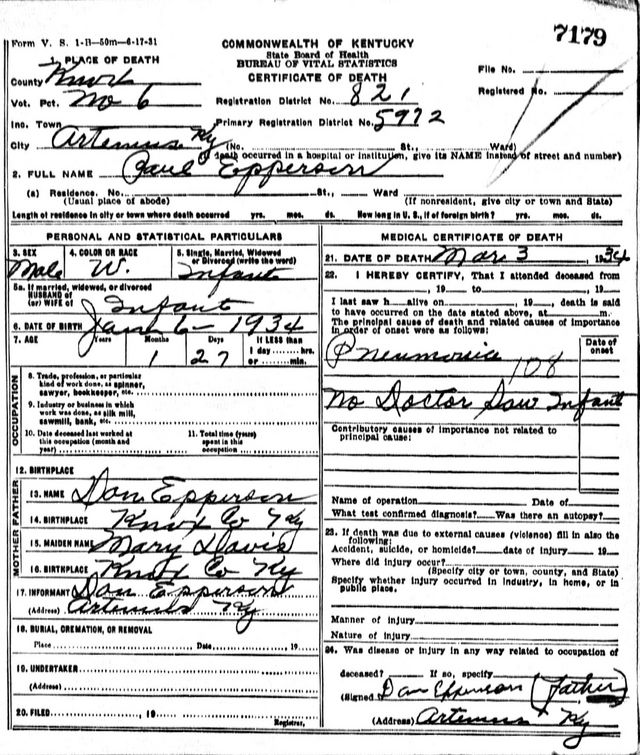 7179
Form V. S. 1-B—50m—6-17-31
COMMONWEALTH OF KENTUCKY
State Board of Health
BUREAU OF VITAL STATISTICS
CERTIFICATE OF DEATH
1. PLACE OF DEATH
County Knox
Vot. Pct. No 6
Inc. Town
City Artemus Ky (No. St., Ward)
File No.
Registered No.
Registration District No. 821
Primary Registration District No. 5972
(If death occurred in a hospital or institution, give its NAME instead of street and number)
2. FULL NAME Paul Epperson
(a) Residence. No. St., Ward
(Usual place of abode) (If nonresident, give city or town and State)
Length of residence in city or town where death occurred yrs. mos. ds. How long in U. S., if of foreign birth? yrs. mos. ds.
PERSONAL AND STATISTICAL PARTICULARS
3. SEX Male
4. COLOR OR RACE W.
5. Single, Married, Widowed or Divorced (write the word) Infant
5a. If married, widowed, or divorced
HUSBAND of
(or) WIFE of Infant
6. DATE OF BIRTH Jan 6 - 1934
7. AGE Years Months Days If LESS than
1 27 1 day hrs.
or min.
OCCUPATION
8. Trade, profession, or particular
kind of work done, as spinner,
sawyer, bookkeeper, etc.
9. Industry or business in which
work was done, as silk mill,
sawmill, bank, etc.
10. Date deceased last worked at
this occupation (month and
year)
11. Total time (years)
spent in this
occupation
12. BIRTHPLACE
FATHER
13. NAME Dan Epperson
14. BIRTHPLACE Knox Co Ky
MOTHER
15. MAIDEN NAME Mary Davis
16. BIRTHPLACE Knox Co Ky
17. INFORMANT Dan Epperson
(Address) Artemus Ky
18. BURIAL, CREMATION, OR REMOVAL
Place Date , 19
19. UNDERTAKER
(Address)
20. FILED , 19
Registrar.
MEDICAL CERTIFICATE OF DEATH
21. DATE OF DEATH Mar 3 1934
22. I HEREBY CERTIFY, That I attended deceased from
, 19 to , 19
I last saw h alive on , 19 , death is said
to have occurred on the date stated above, at m.
The principal cause of death and related causes of importance
in order of onset were as follows:
Date of
onset
Pneumonia 108
No Doctor Saw Infant
Contributory causes of importance not related to
principal cause:
Name of operation Date of
What test confirmed diagnosis? Was there an autopsy?
23. If death was due to external causes (violence) fill in also the
following:
Accident, suicide, or homicide? date of injury 19
Where did injury occur?
(Specify city or town, county, and State)
Specify whether injury occurred in industry, in home, or in
public place.
Manner of injury
Nature of injury
24. Was disease or injury in any way related to occupation of
deceased? If so, specify
(Signed) Dan Epperson (Father)
(Address) Artemus Ky